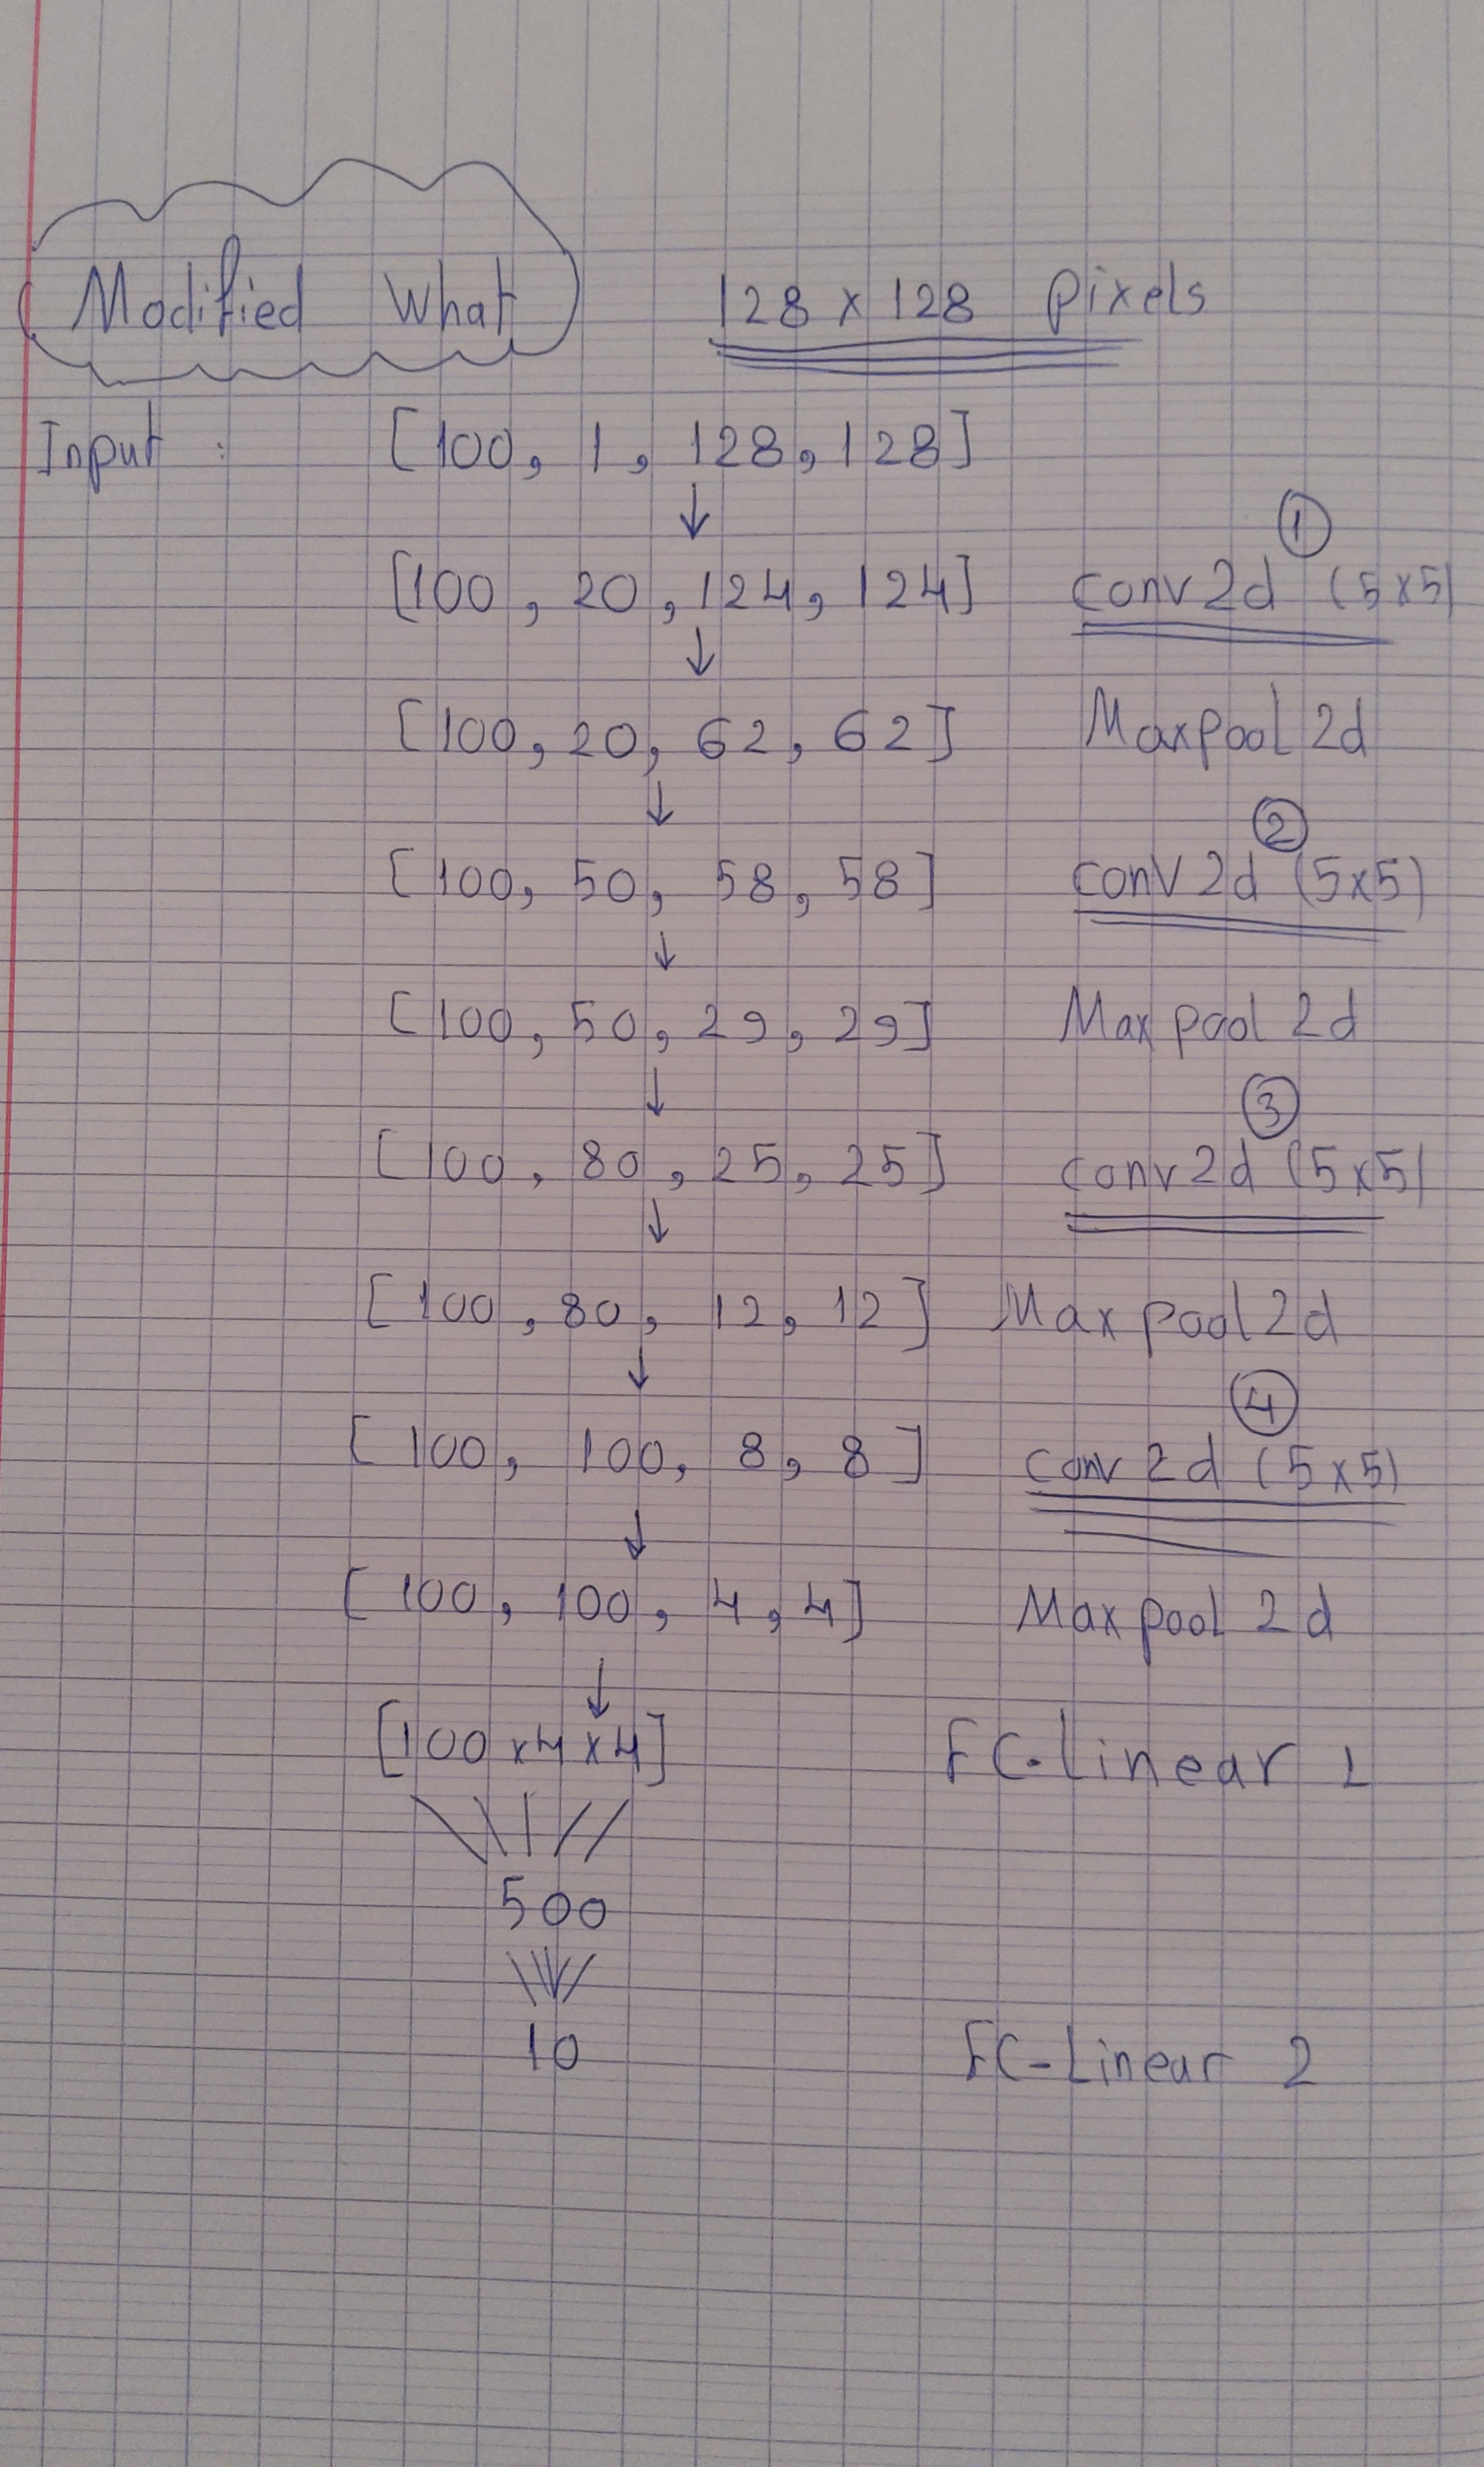 Modified What 128 x 128 pixels
Input : [100, 1, 128, 128]
↓
①
[100, 20, 124, 124] conv2d (5x5)
↓
[100, 20, 62, 62] Maxpool 2d
↓
②
[100, 50, 58, 58] conv 2d (5x5)
↓
[100, 50, 29, 29] Maxpool 2d
↓
③
[100, 80, 25, 25] conv2d (5x5)
↓
[100, 80, 12, 12] Maxpool 2d
↓
④
[100, 100, 8, 8] conv 2d (5x5)
↓
[100, 100, 4, 4] Maxpool 2d
↓
[100 x 4 x 4] FC-Linear 1
500
10 FC-Linear 2